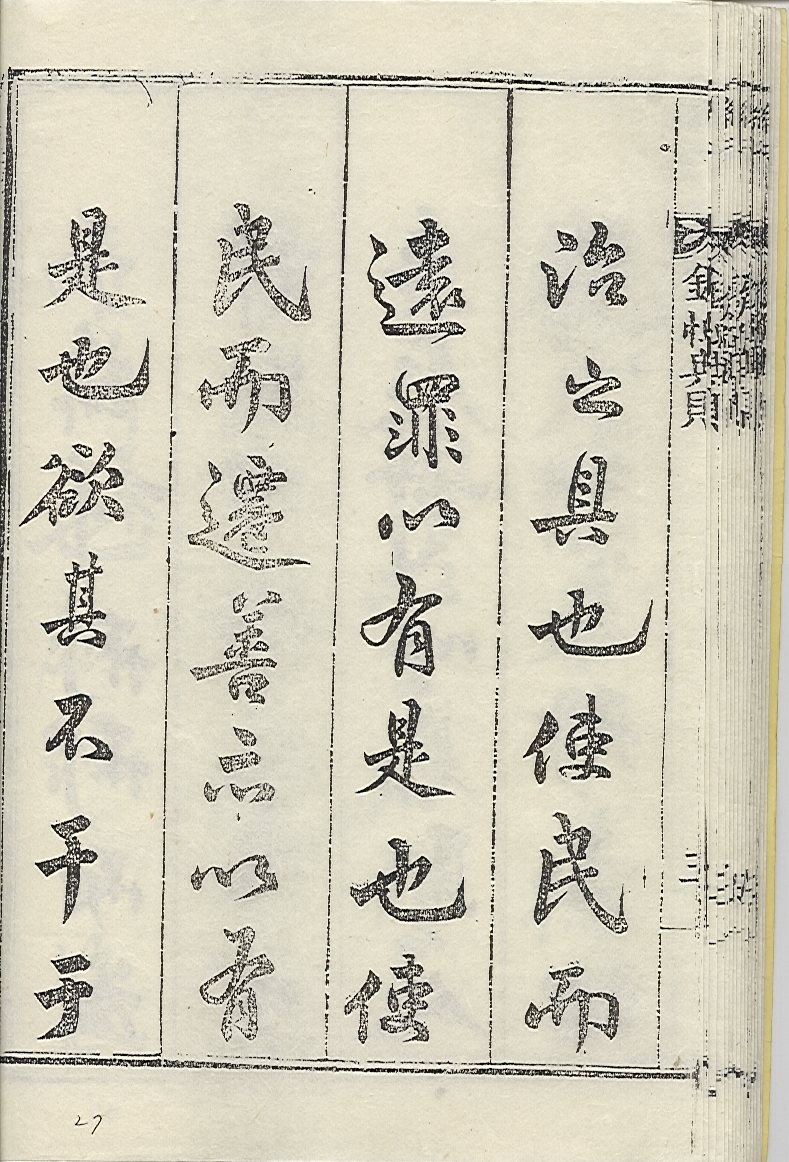 欽恤典則
三
治之具也使民而
遠罪以有是也使
民而遷善亦以有
是也欲其不干于
27